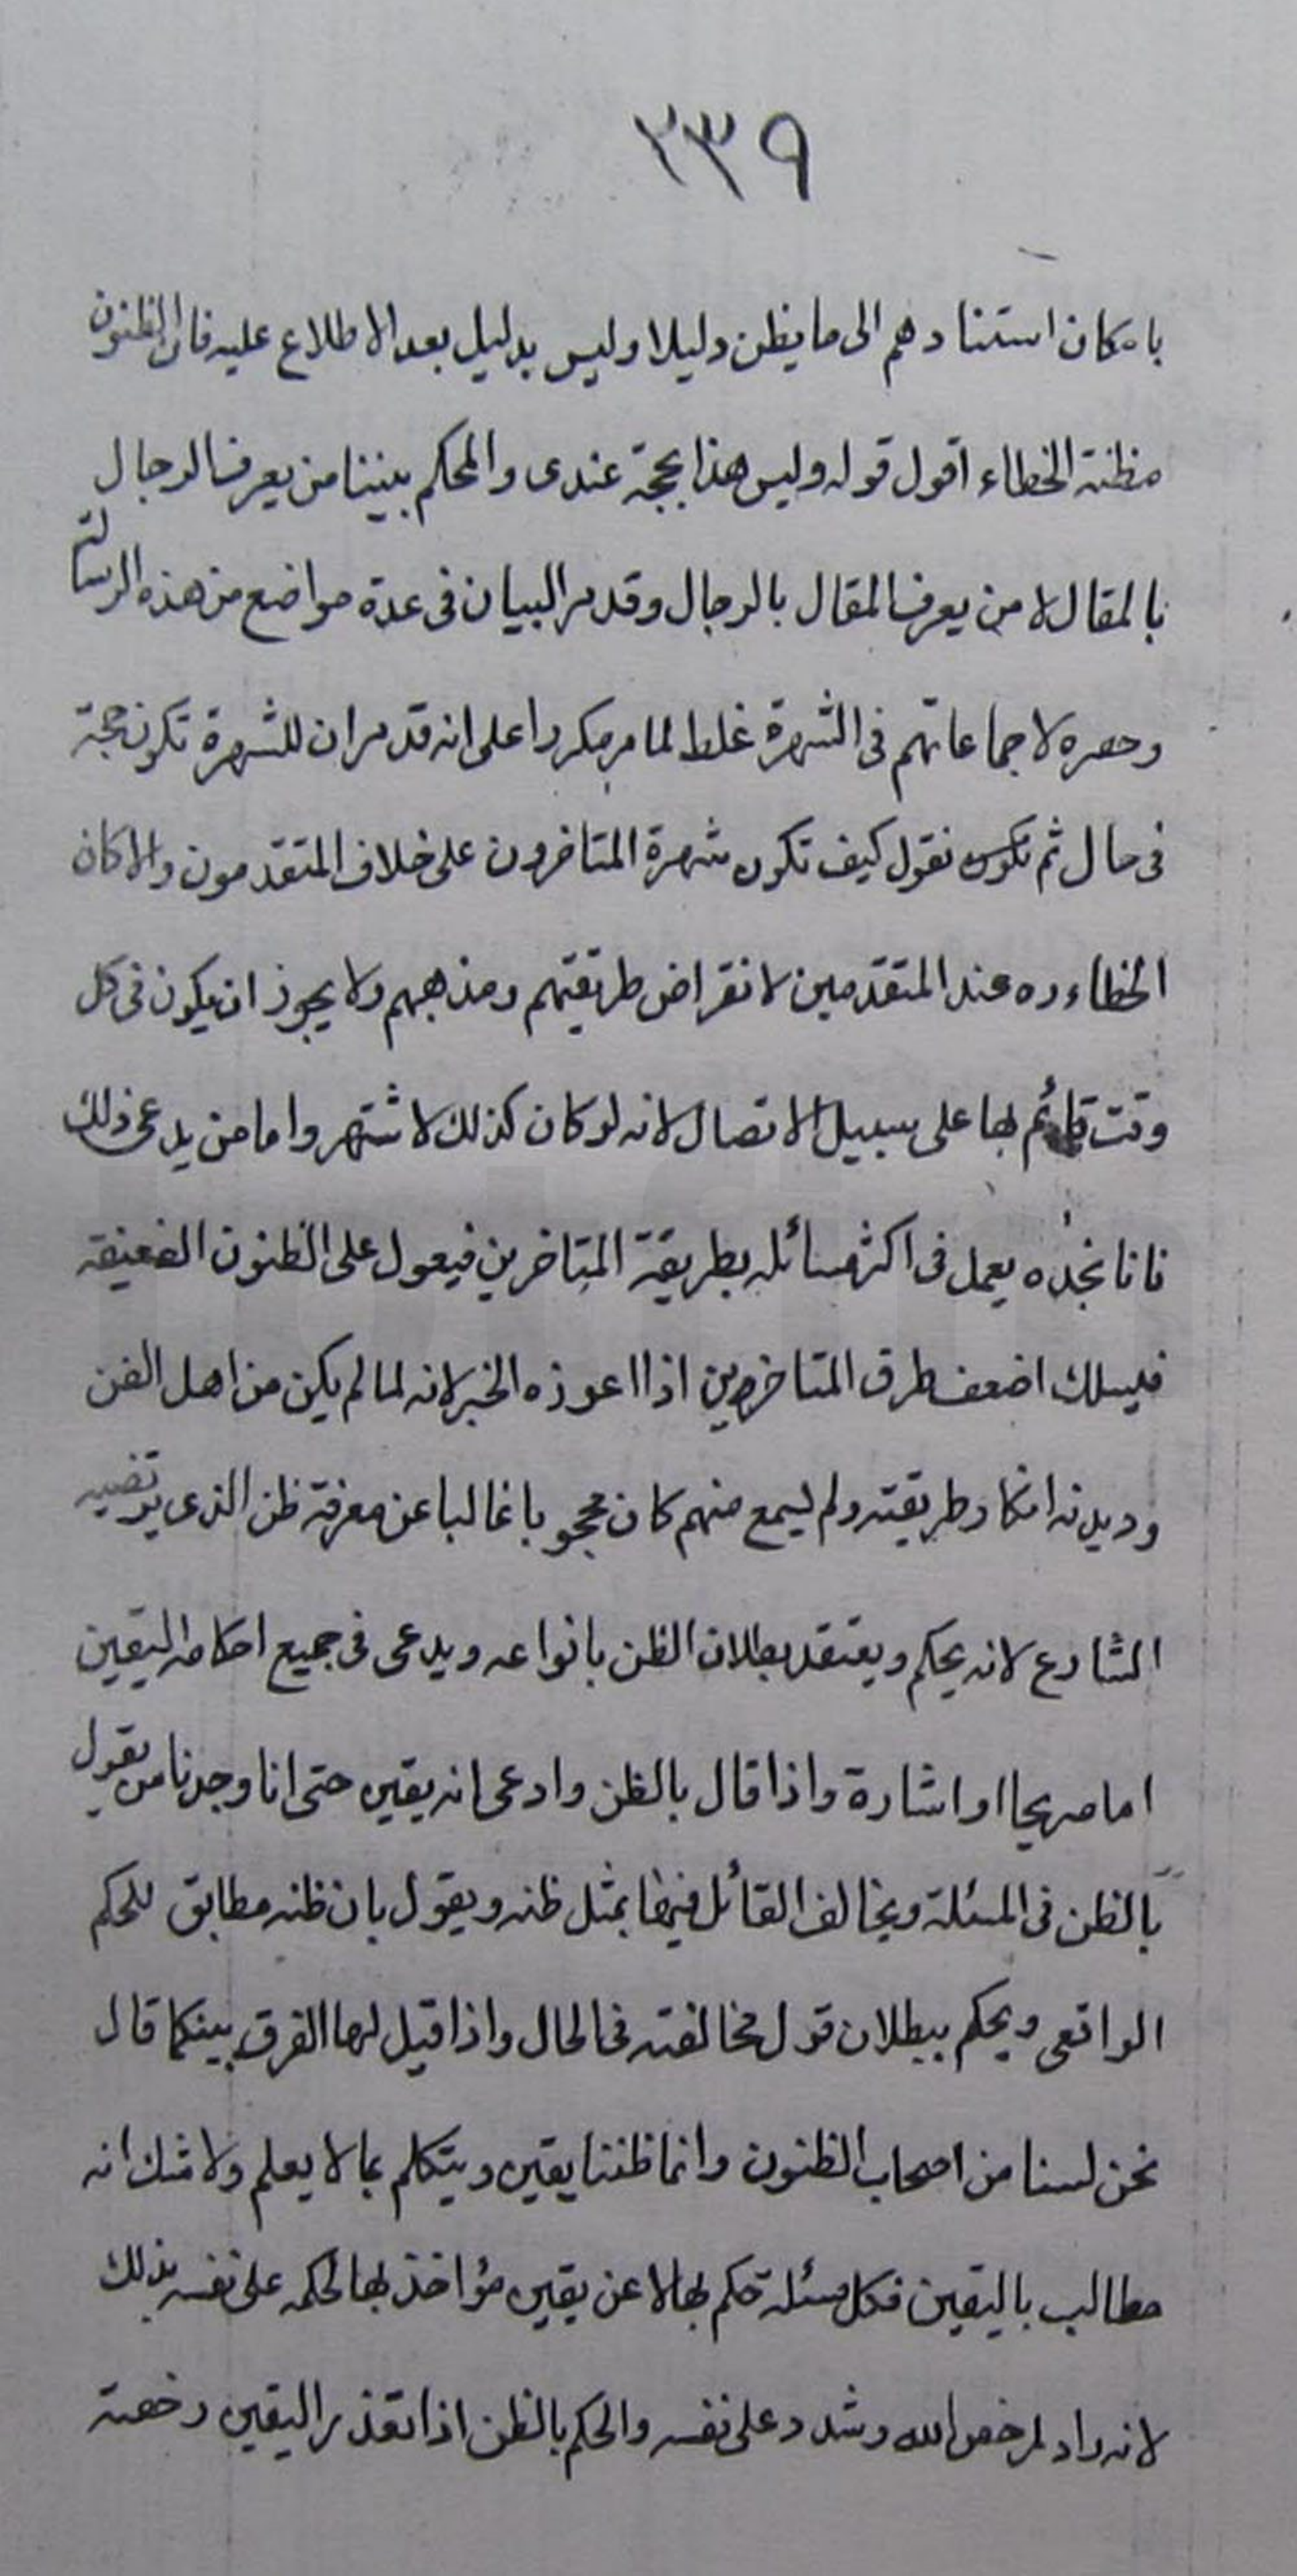 ٣٣٩
بامكان استنادهم الى ما يظن دليلا وليس بدليل بعد الاطلاع عليه فان الظنون
مظنة الخطاء اقول قوله وليس هذا بحجة عندى والمحكم بيننا من يعرف الرجال
بالمقال لا من يعرف المقال بالرجال وقد مر البيان فى عدة مواضع من هذه الرسالة
وحصره لاجماعاتهم فى الشهرة غلط لما مر مكررا على انه قد مر ان للشهرة تكون حجة
فى حال ثم نقول كيف تكون شهرة المتاخرون على خلاف المتقدمون والا كان
الخطاء عند المتقدمين لانقراض طريقتهم ومذهبهم ولا يجوز ان يكون فى كل
وقت قائم بها على سبيل الاتصال لانه لو كان كذلك لاشتهر واما من يدعى ذلك
فانا نجده يعمل فى اكثر مسائله بطريقة المتاخرين فيعول على الظنون الضعيفة
فيسلك اضعف طرق المتاخرين اذا اعوزه الخبر لانه لما لم يكن من اهل الفن
وديدنه انكار طريقته ولم يسمع منهم كان محجوبا غالبا عن معرفة ظن الذى يرتضيه
الشارع لانه يحكم ويعتقد بطلان الظن بانواعه ويدعى فى جميع احكامه اليقين
اما صريحا او اشارة واذا قال بالظن وادعى انه يقين حتى انا وجدنا من يقول
بالظن فى المسئلة ويخالف القائل فيها بمثل ظنه ويقول بان ظنه مطابق للحكم
الواقعى ويحكم ببطلان قول مخالفته فى الحال واذا قيل لهما الفرق بينكما قال
نحن لسنا من اصحاب الظنون وانما ظننا يقين ويتكلم بما لا يعلم ولا شك انه
مطالب باليقين فكل مسئلة حكم بها لا عن يقين مؤاخذ بها لحكمه على نفسه بذلك
لانه راد لرخص الله وشدد على نفسه والحكم بالظن اذا تعذر اليقين رخصة